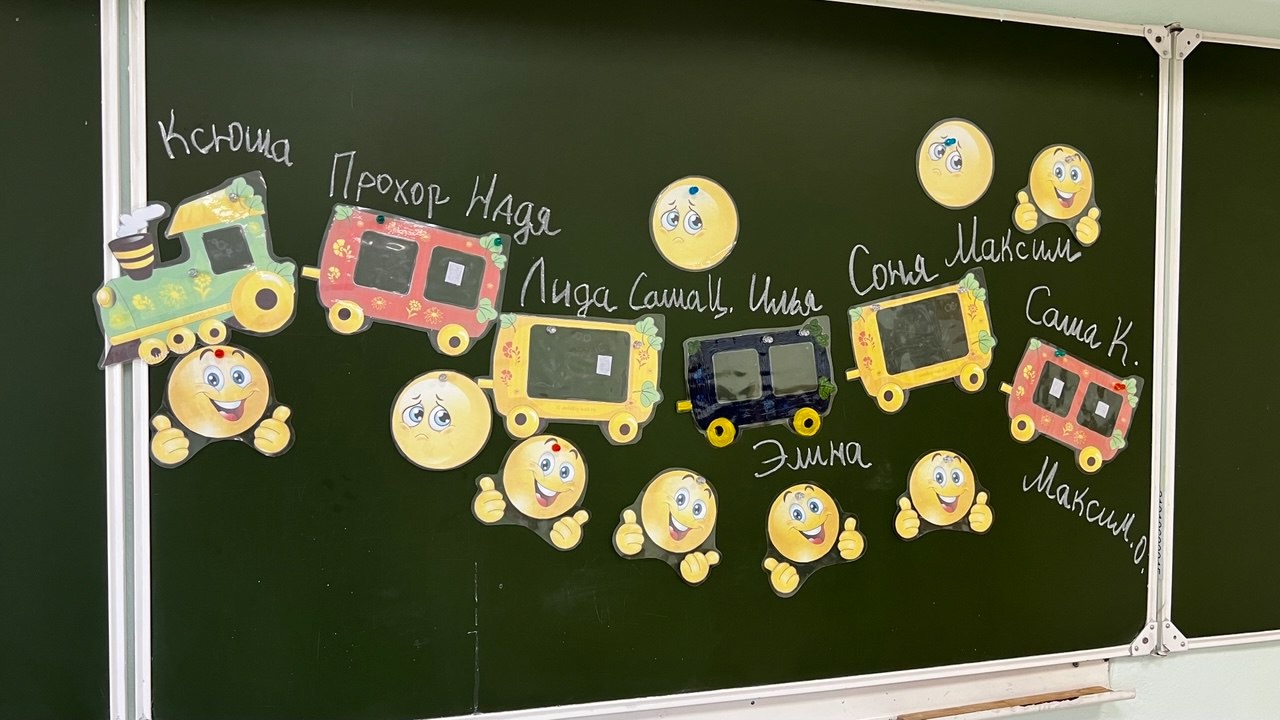 Ксюша
Прохор Надя
Лида Саша Ц. Илья
Элина
Соня Максим
Саша К.
Максим.О.